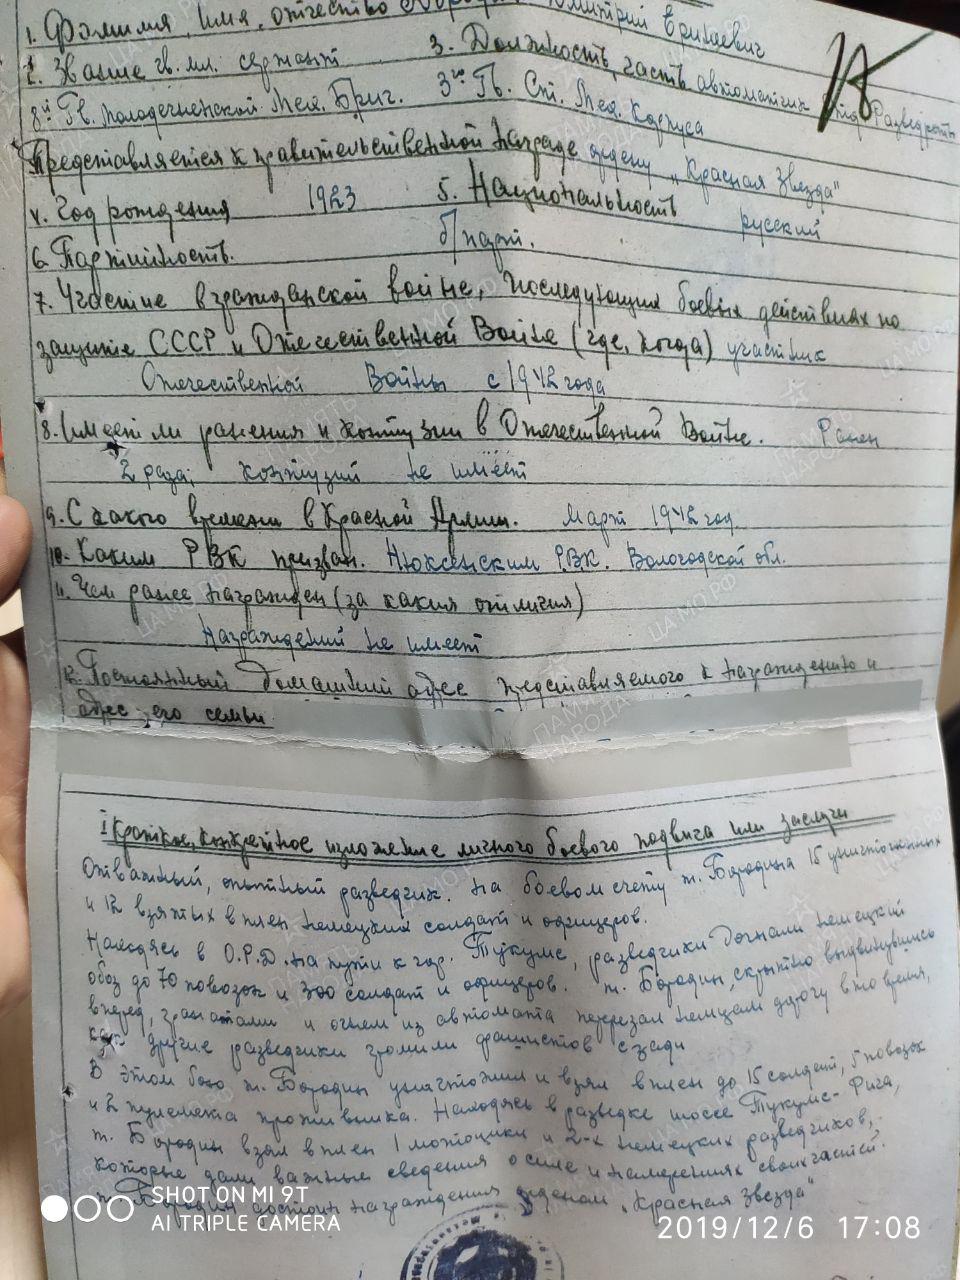 1. Фамилия, имя, отчество Бородин Дмитрий
2. Звание гв. мл. сержант 3. Должность, часть автоматчик отд. Разведроты
8й Гв. Молодечненской Мех. Бриг. 3го Гв. Ст. Мех. Корпуса
Представляется к правительственной награде ордену „Красная Звезда"
4. Год рождения 1923 5. Национальность русский
6. Партийность. б/парт.
7. Участие в гражданской войне, последующих боевых действиях по
защите СССР и Отечественной Войне (где, когда) участник
Отечественной Войны с 1942 года
8. Имеет ли ранения и контузии в Отечественной Войне. Ранен
2 раза; контузий не имеет
9. С какого времени в Красной Армии. Март 1942 год
10. Каким РВК призван. Нюксенским Р.В.К. Вологодской обл.
11. Чем ранее награжден (за какия отличия)
Награждений не имеет
12. Постоянный домашний адрес представляемого к награждению и
адрес его семьи
I Краткое, конкретное изложение личного боевого подвига или заслуги
Отважный, опытный разведчик. На боевом счету т. Бородина 15 уничтоженных
и 12 взятых в плен немецких солдат и офицеров.
Находясь в О.Р.Д. на пути к гор. Тукумс, разведчики догнали немецкий
обоз до 70 повозок и 300 солдат и офицеров. т. Бородин, скрытно выдвинувшись
вперед, гранатами и огнем из автомата перерезал немцам дорогу в то время,
как другие разведчики громили фашистов сзади
В этом бою т. Бородин уничтожил и взял в плен до 15 солдат, 5 повозок
и 2 пулемета противника. Находясь в разведке шоссе Тукумс-Рига,
т. Бородин взял в плен 1 мотоцикл и 2-х немецких разведчиков,
которые дали важные сведения о силе и намерениях своих частей.
т. Бородин достоин награждения орденом „Красная Звезда"
SHOT ON MI 9T
AI TRIPLE CAMERA
2019/12/6 17:08